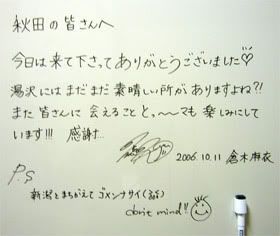 秋田の皆さんへ
今日は来て下さってありがとうございました♡
湯沢にはまだまだ素晴しい所がありますよね?!
また皆さんに会えることと、〜〜マも楽しみにして
います!!! 感謝…
2006.10.11 倉木麻衣
P.S
新潟とまちがえてゴメンナサイ
don't mind!!